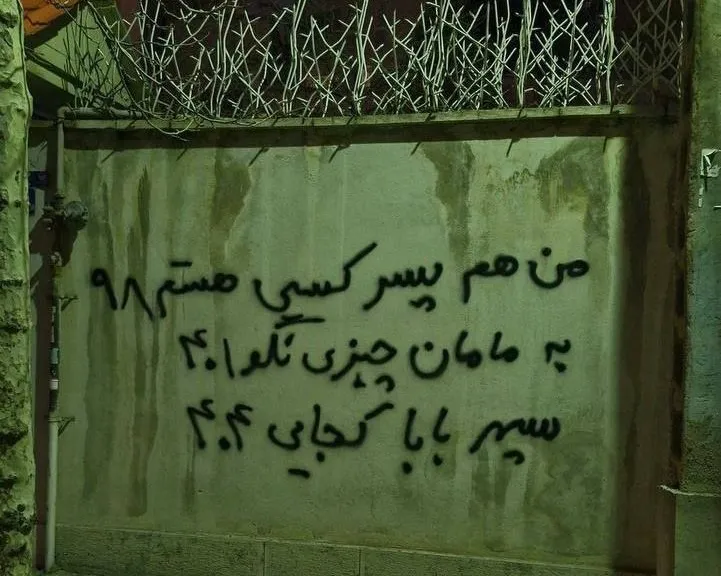 من هم پسر کسی هستم ۹۸
به مامان چیزی نگو ۴۰۱
سپهر بابا کجایی ۴۰۴